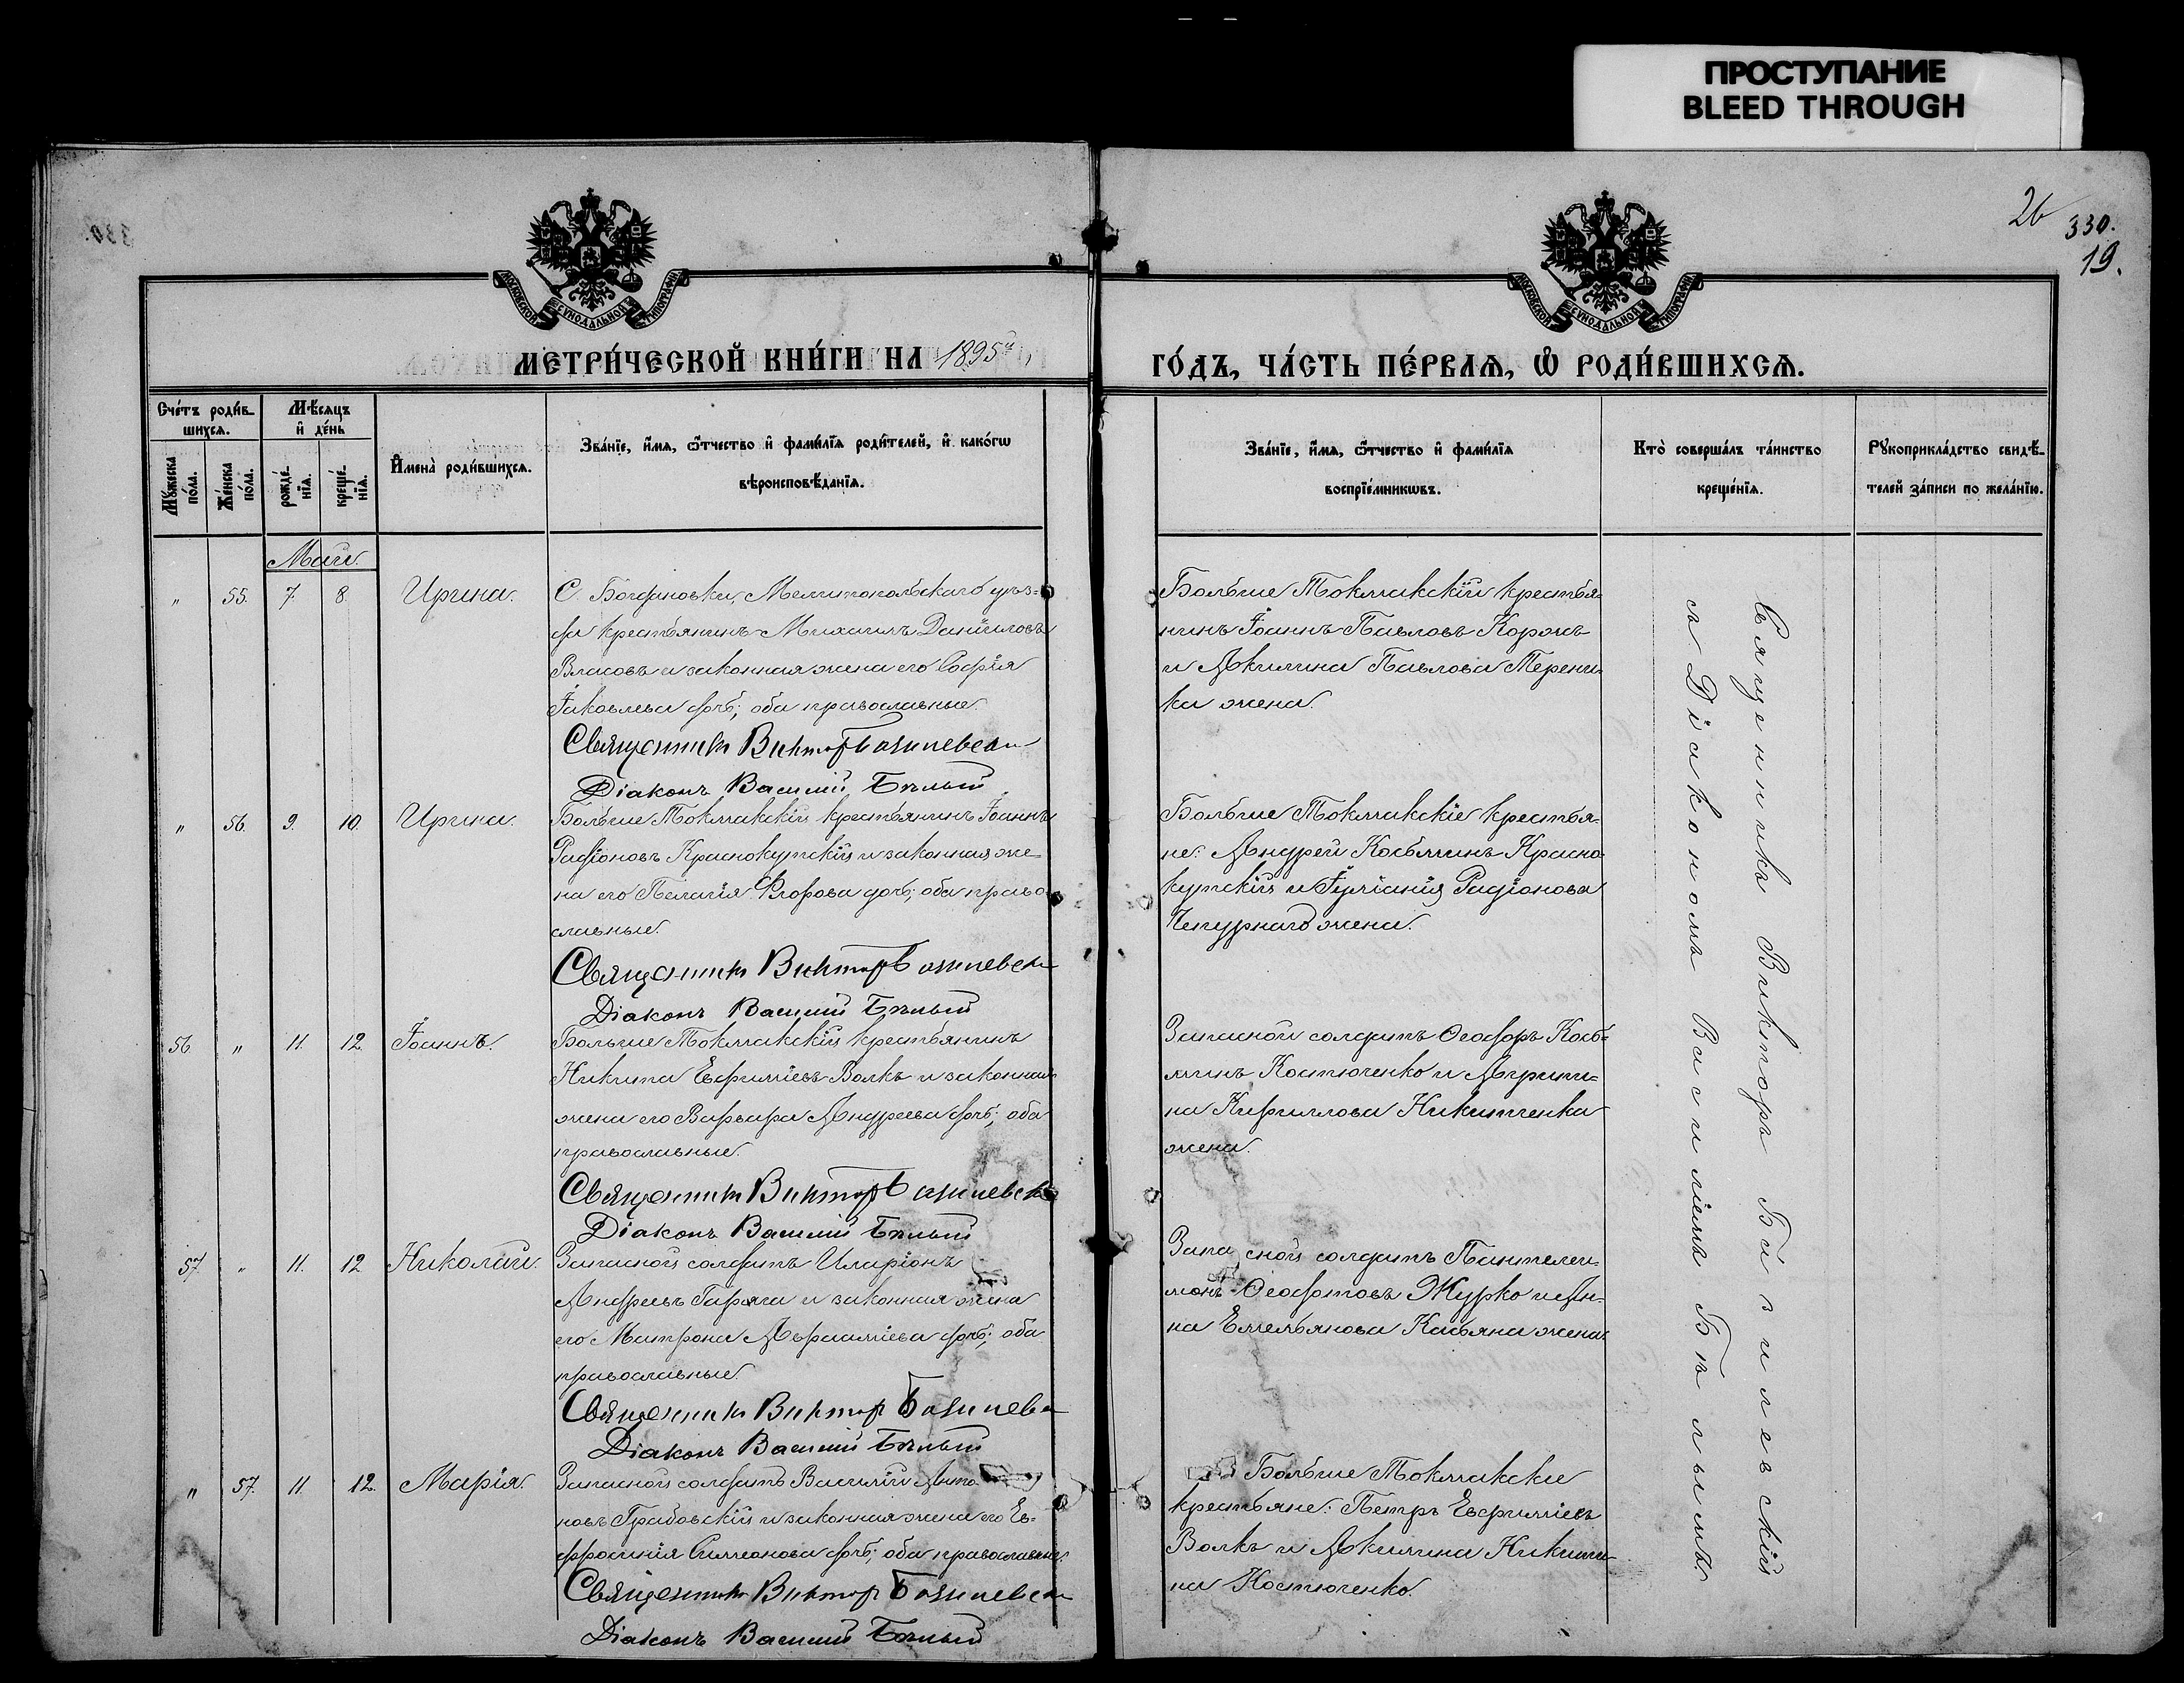 ПРОСТУПАНИЕ
BLEED THROUGH
26
330.
19.
МОСКОВСКОЙ СѴНОДАЛЬНОЙ ТИПОГРАФІИ
МОСКОВСКОЙ СѴНОДАЛЬНОЙ ТИПОГРАФІИ
МЕТРИ́ЧЕСКОЙ КНИ́ГИ НА 1895й
ГО́ДЪ, ЧА́СТЬ ПЕ́РВАѦ, Ѽ РОДИ́ВШИХСѦ.
Сче́тъ роди́в-
шихсѧ.
Мѣ́сѧцъ
и҆ де́нь
Мꙋ́жеска
по́ла.
Же́нска
по́ла.
рожде́-
нїѧ.
креще́-
нїѧ.
И҆мена̀ роди́вшихсѧ.
Зва́нїе, и҆́мѧ, ѻ҆́тчество и҆ фами́лїѧ роди́телей, и҆ како́гѡ
вѣроисповѣ́данїѧ.
Зва́нїе, и҆́мѧ, ѻ҆́тчество и҆ фами́лїѧ
воспрїе́мникѡвъ.
Кто̀ соверша́лъ та́инство
креще́нїѧ.
Рꙋкоприкла́дство свидѣ́-
телей за́писи по жела́нїю.
Май.
" 55. 7. 8. Ирина.
С. Богдановки, Мелитопольскаго уѣз-
да крестьянинъ Михаилъ Даніиловъ
Власовъ и законная жена его Софія
Іаковлева дочь; оба православные.
Священникъ Викторъ Базилевскій
Діаконъ Василій Бѣлый
Больше Токмакскій крестья-
нинъ Іоаннъ Павловъ Коржъ
и Акилина Павлова Теренть-
ка жена.
" 56. 9. 10. Ирина.
Больше Токмакскій крестьянинъ Іоаннъ
Радіоновъ Краснокутскій и законная же-
на его Пелагія Егорова дочь; оба право-
славные.
Священникъ Викторъ Базилевскій
Діаконъ Василій Бѣлый
Больше Токмакскіе крестья-
не: Андрей Косьминъ Красно-
кутскій и Іуліанія Радіонова
Чепурнаго жена.
56 " 11. 12. Іоаннъ.
Больше Токмакскій крестьянинъ
Никита Евфиміевъ Волкъ и законная
жена его Варвара Андреева дочь; оба
православные.
Священникъ Викторъ Базилевскій
Діаконъ Василій Бѣлый
Запасной солдатъ Ѳеодоръ Кось-
минъ Костюченко и Агрипи-
на Кириллова Никитченка
жена.
57. " 11. 12 Николай.
Запасной солдатъ Иларіонъ
Андреевъ Гаряга и законная жена
его Матрона Авраамиева дочь; оба
православные.
Священникъ Викторъ Базилевскій
Діаконъ Василій Бѣлый
Запасной солдатъ Пантелеи-
монъ Ѳеодотовъ Журко и Ан-
на Емельянова Касьяна жена.
" 57. 11. 12. Марія.
Запасной солдатъ Василій Анто-
новъ Грабовскій и законная жена его Ев-
фросинія Симеонова дочь; оба православные.
Священникъ Викторъ Базилевскій
Діаконъ Василій Бѣлый
Больше Токмакскіе
крестьяне: Петръ Евфиміевъ
Волкъ и Акилина Никити-
на Костюченко.
Священникъ Викторъ Базилевскій
съ Діакономъ Василіемъ Бѣлымъ